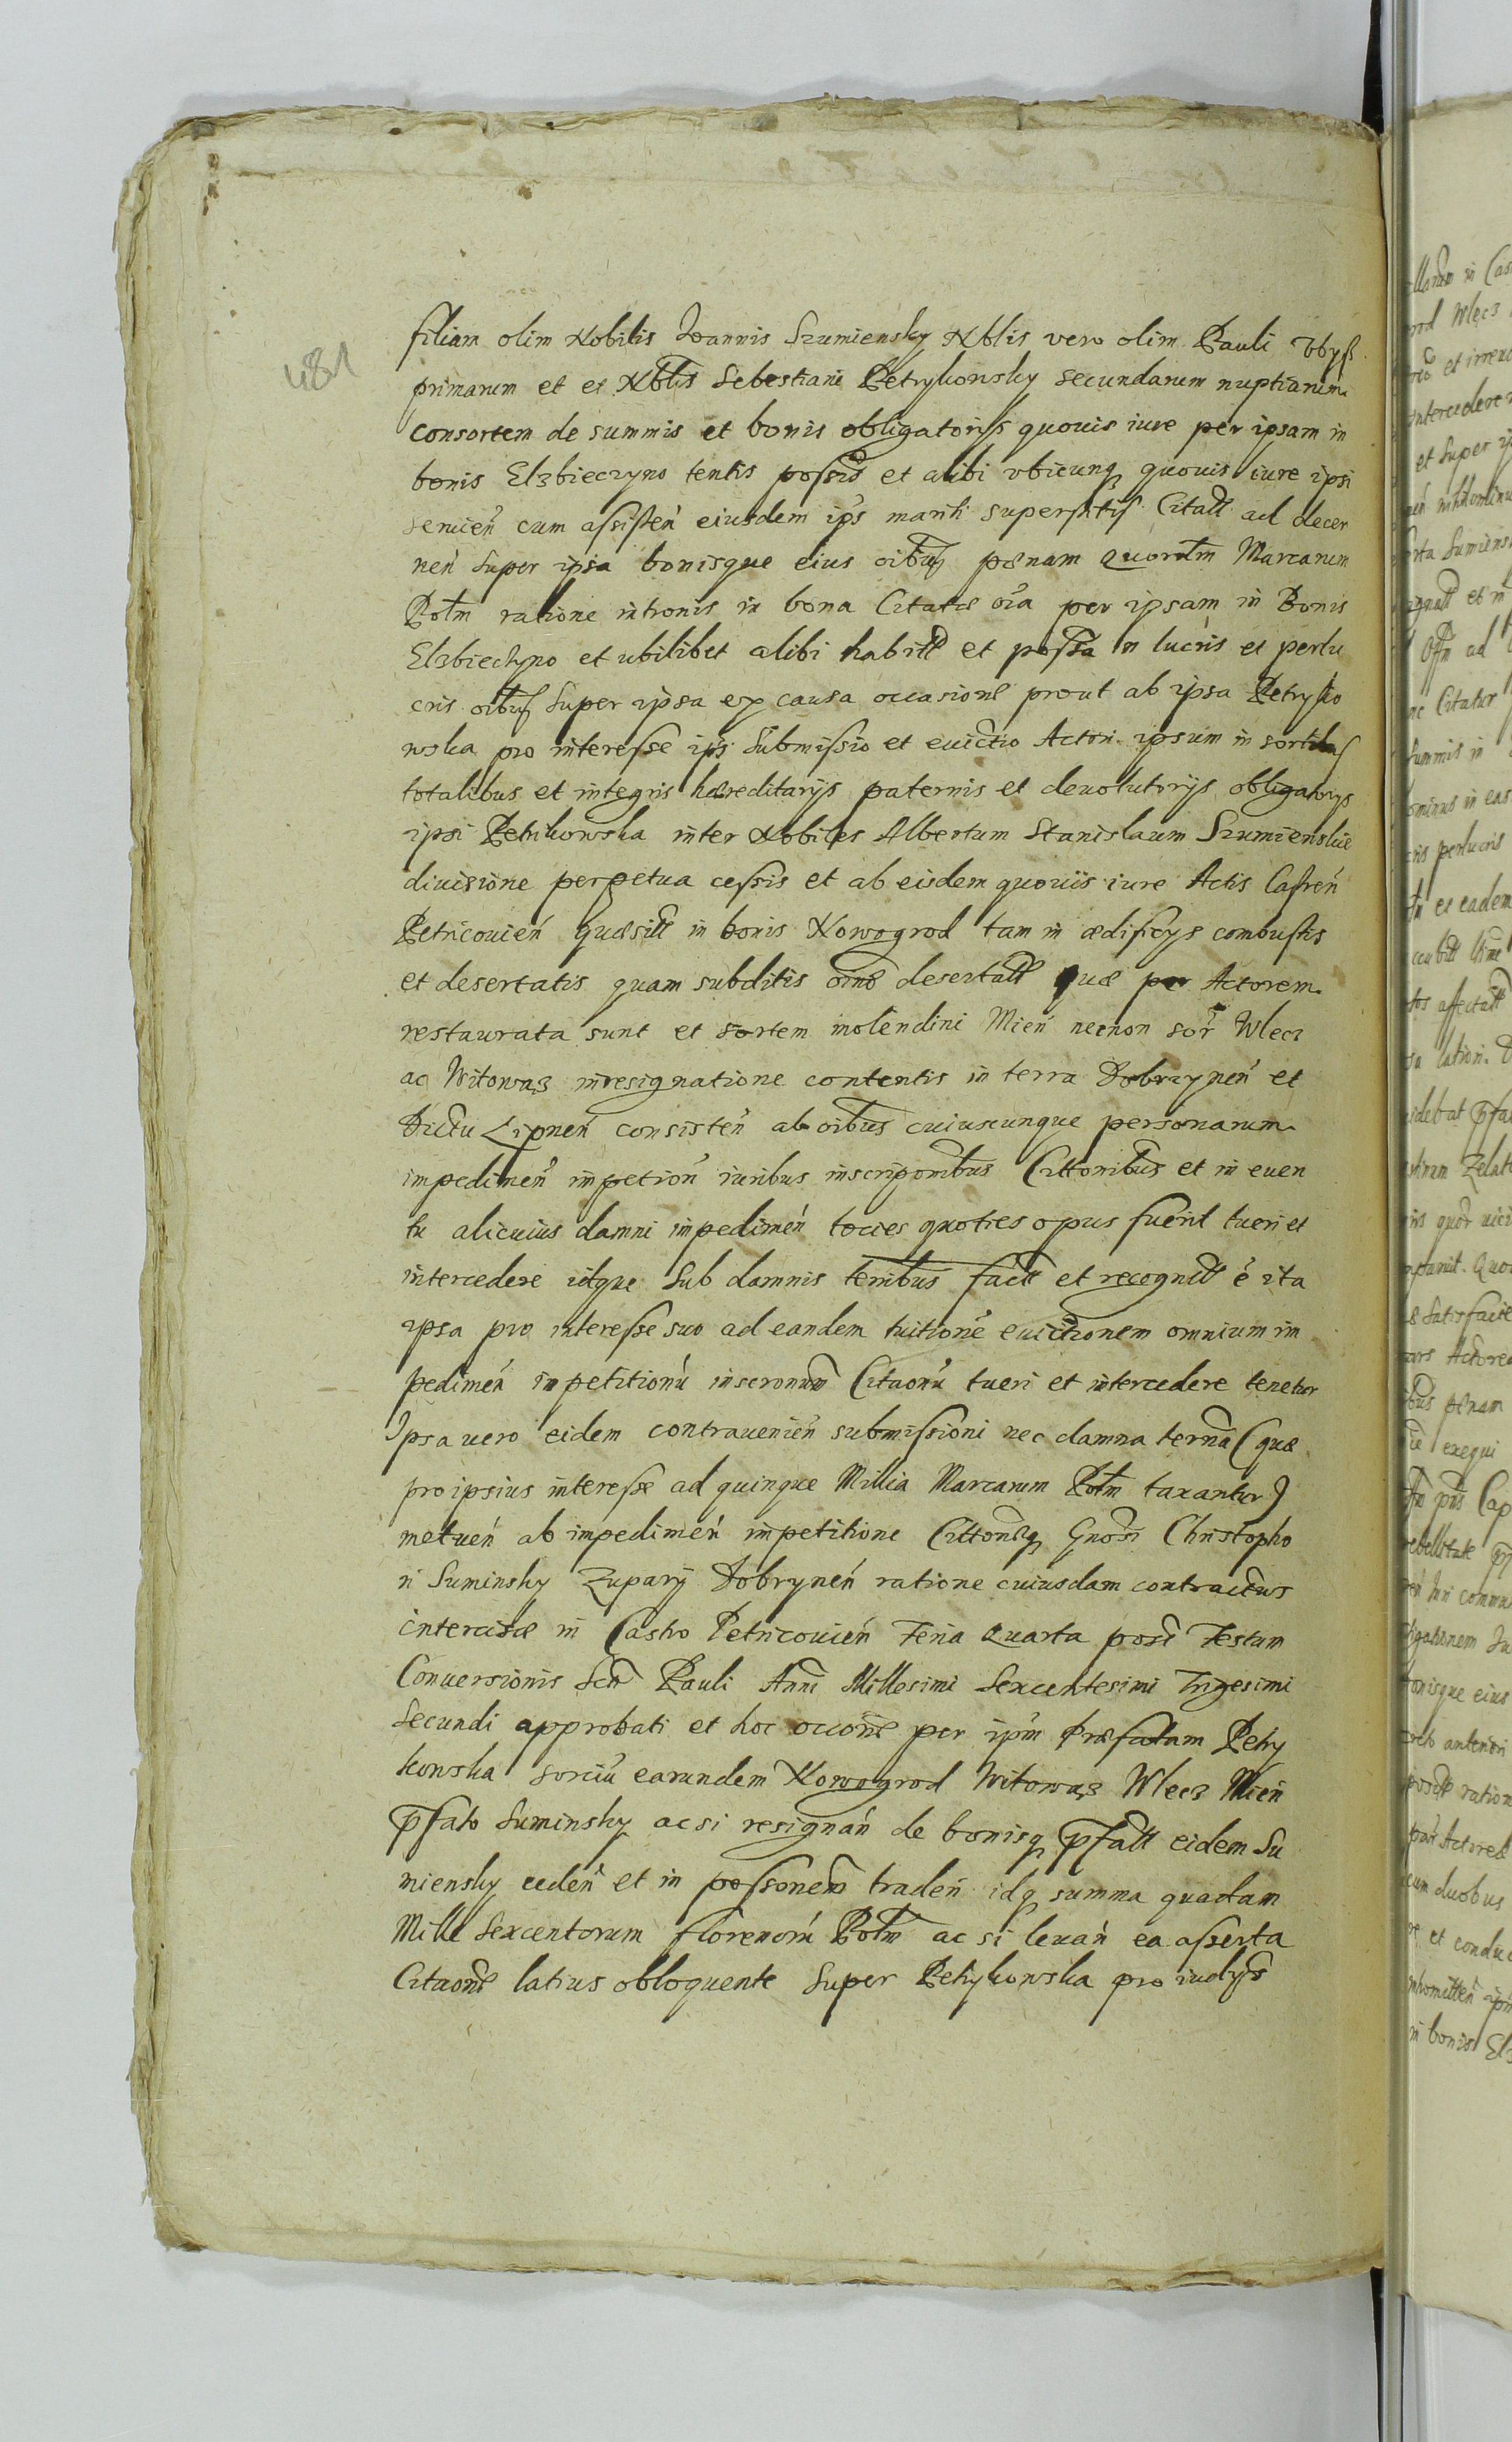 481
filiam olim Nobilis Joannis Szumiensky Nblis vero olim Pauli
primarum et et Nblis Sebestiani Petrykonsky secundarum nuptiarum
consortem de summis et bonis obligatorijs quovis iure per ipsam in
bonis Elzbieczyno tentis possis et alibi vbicunq quouis iure ipsi
seruień cum assisteń eiusdem ips mariti superstitis Citatt ad decer
neń super ipsa bonisque eius oibus pænam Marcarum
Polm ratione intronis in bona Citatæ oia per ipsam in Bonis
Elzbieczyno et ubilibet alibi habitt et possa in lucris et perlu
cris oibus super ipsa ex causa occasione prout ab ipsa Petryko
wska pro interesse ips submissio et euictio Actori ipsum in sortibus
totalibus et integris hæreditarijs paternis et deuolutorijs obligatorijs
ipsi Petrikowska inter Nobiles Albertum Stanislaum Szumienskie
diuisione perpetua cessis et ab eisdem quouis iure Actis Castreń
Petricouień quæsitt in bonis Nowogrod tam in ædificys combustis
et desertatis quam subditis oino desertatt quæ per Actorem
restaurata sunt et sortem molendini Mień necnon sor Wlecz
ac Witowaz inresignatione contentis in terra Dobrzyneń et
Dictu Lipneń consisteń ab oibus cuiuscunque personarum
impedimeń impetioń iuribus inscriponibus Cittonibus et in euen
tu alicuius damni impedimeń tocies quoties opus fuerit tueri et
intercedere idque sub damnis terribus factt et recognitt é ita
ipsa pro interesse suo ad eandem tuitione euictionem omnium im
pedimeń inpetitionu inscronum Citaonu tueri et intercedere tenetur
Ipsa uero eidem contrauenień submissioni nec damna terna (quæ
pro ipsius interesse ad quinque Millia Marcarum Polm taxantur)
metueń ab impedimeń inpetitione Cittoneq Gnosi Christopho
ri Suminsky Zuparij Dobryneń ratione cuiusdam contractus
intercisæ in Castro Petricouień Feria Quarta post Festum
Conuersionis Scti Pauli Anni Millesimi Sexcentesimi Trigesimi
Secundi approbati et hoc occone per ipm præfatam Petry
kowska sorciu earundem Nowogrod Witowaz Wlecz Mień
pfato Suminsky ac si resignań de bonisq pfatt eidem Su
miensky cedeń et in possonem tradeń idq summa quadam
Mille Sexcentorum florenoru Polm ac si leuań ea asserta
Citaone latius obloquente super Petrykowska pro iudys